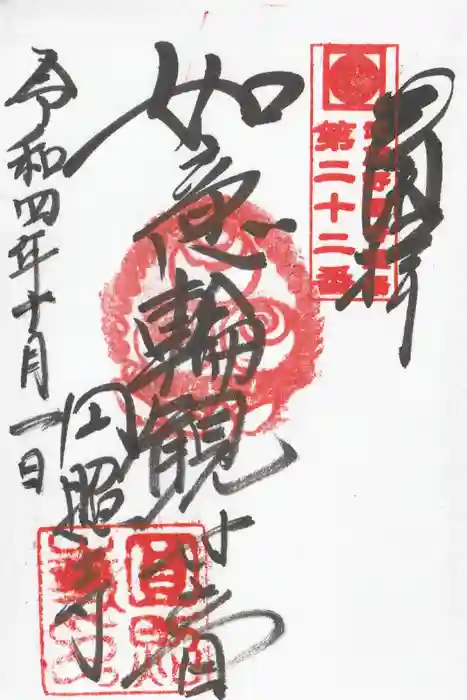 奉拝
第二十二番
如意輪観世音
令和四年十月一日
円照寺